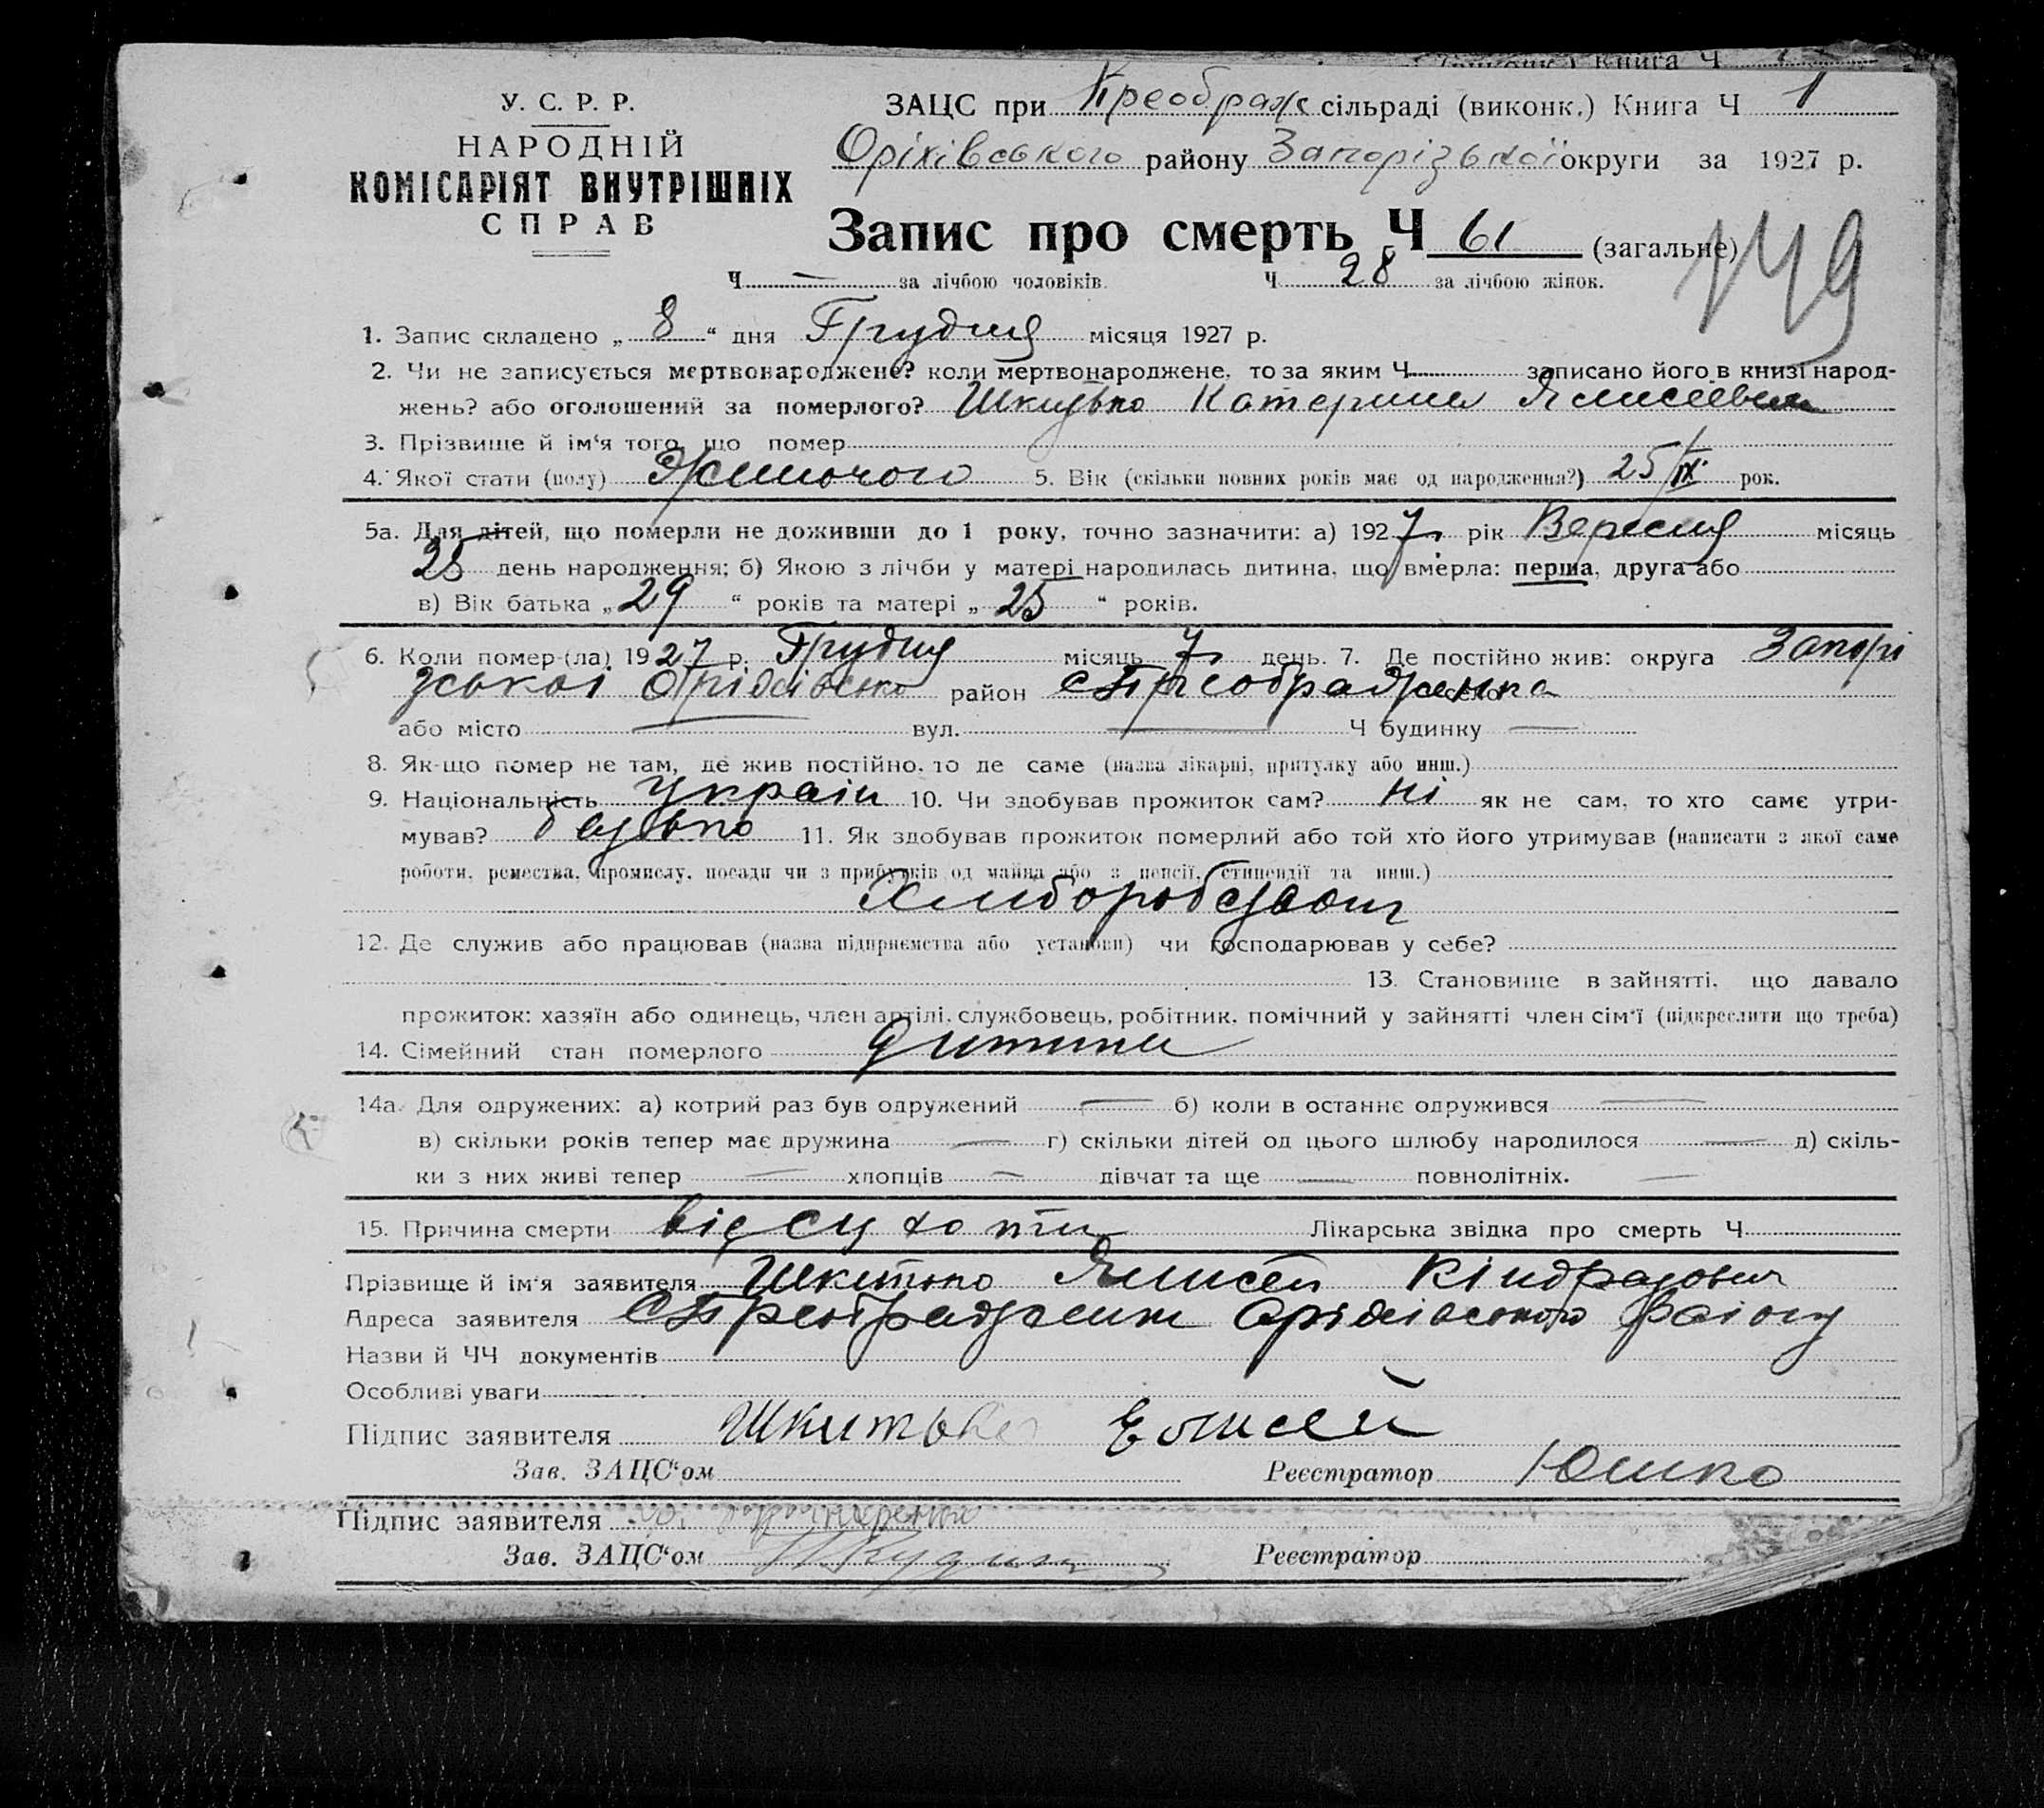 книга Ч
У. С. Р. Р.
НАРОДНІЙ
КОМІСАРІЯТ ВНУТРІШНІХ
СПРАВ
ЗАЦС при Преображ сільраді (виконк.) Книга Ч 1
Оріхівського району Запорізької округи за 1927 р.
Запис про смерть Ч 61 (загальне)
149
Ч — за лічбою чоловіків. Ч 28 за лічбою жінок.
1. Запис складено „ 8 “ дня Грудня місяця 1927 р.
2. Чи не записується мертвонароджене? коли мертвонароджене, то за яким Ч записано його в книзі народ-
жень? або оголошений за померлого? Шкитько Катерина
3. Прізвище й ім‘я того що помер
4. Якої стати (полу) Жиночого 5. Вік (скільки повних років має од народження?) 25/IX рок.
5а. Для дітей, що померли не доживши до 1 року, точно зазначити: а) 1927 рік Вересня місяць
25 день народження; б) Якою з лічби у матері народилась дитина, що вмерла: перша, друга або
в) Вік батька „ 29 “ років та матері „ 25 “ років.
6. Коли помер-(ла) 1927 р. Грудня місяць 7 день. 7. Де постійно жив: округа Запорі
зської Оріхівсько район с Преображенка село
або місто — вул. — Ч будинку —
8. Як-що помер не там, де жив постійно, то де саме (назва лікарні, притулку або инш.)
9. Національність Україн 10. Чи здобував прожиток сам? Ні як не сам, то хто саме утри-
мував? батько 11. Як здобував прожиток померлий або той хто його утримував (написати з якої саме
роботи, ремества, промислу, посади чи з прибутків од майна або з пенсії, стипендії та инш.)
12. Де служив або працював (назва підприємства або установи) чи господарював у себе?
13. Становище в зайнятті, що давало
прожиток: хазяїн або одинець, член артілі, службовець, робітник, помічний у зайнятті член сім‘ї (підкреслити що треба)
14. Сімейний стан померлого дитина
14а. Для одружених: а) котрий раз був одружений — б) коли в останнє одружився —
в) скільки років тепер має дружина — г) скільки дітей од цього шлюбу народилося — д) скіль-
ки з них живі тепер — хлопців — дівчат та ще — повнолітніх. —
15. Причина смерти від сухоти Лікарська звідка про смерть Ч
Прізвище й ім‘я заявителя Шкитько Ялисей Кіндратович
Адреса заявителя с Преображенка Оріхівського району
Назви й ЧЧ документів
Особливі уваги
Підпис заявителя Шкитько Елисей
Зав. ЗАЦС‘ом Реєстратор Юшко
Підпис заявителя
Зав. ЗАЦС‘ом Реєстратор